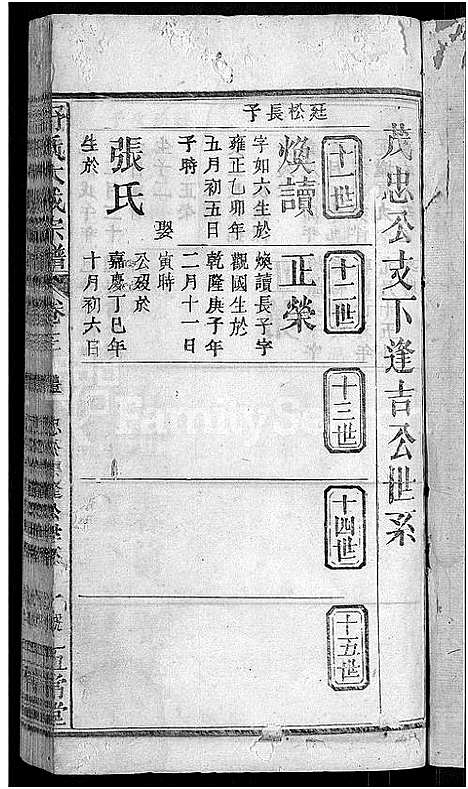 茂忠公支下逢吉公世系
十一世
十二世
十三世
十四世
十五世
廷松長子
煥讀
字如六生於
雍正乙卯年
五月初五日
子時
娶
張氏
生於
正榮
煥讀長子字
觀國生於
乾隆庚子年
二月十一日
寅時
公歿於
嘉慶丁巳年
十月初六日
大成宗譜
卷三